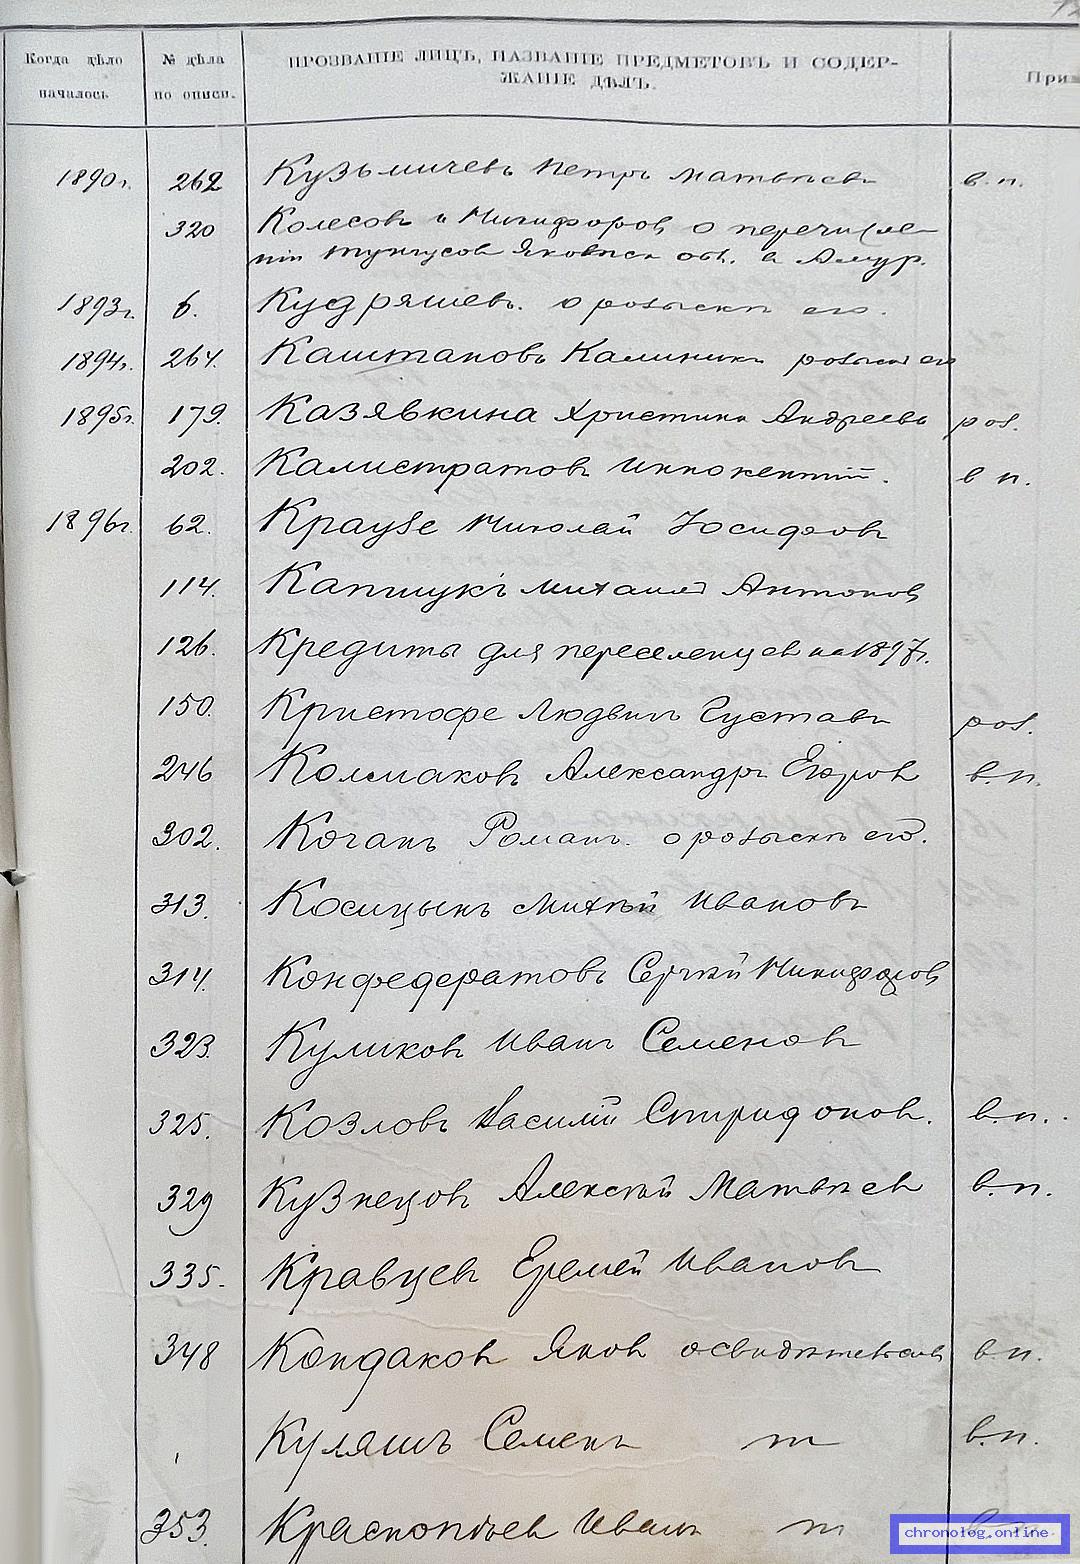 Когда дѣло началось
№ дѣла по описи.
ПРОЗВАНІЕ ЛИЦЪ, НАЗВАНІЕ ПРЕДМЕТОВЪ И СОДЕР-
ЖАНІЕ ДѢЛЪ.
При
1890г. 262 Кузьмичевъ Петръ Матвѣевъ в.п.
320 Колесовъ и Никифоровъ о перечисле-
ніи тунгусовъ Якутск обл. в Амур.
1893г. 6. Кудряшевъ. о розыскѣ его.
1894г. 264. Каштановъ Калиникъ розыск его
1895г. 179. Казявкина Христина Андреева роз.
202. Калистратовъ Иннокентій. в п.
1896г. 62. Краузе Николай Іосифовъ
114. Капшукъ Михаилъ Антоновъ
126. Кредиты для переселенцевъ на 1897г.
150. Кристофе Людвигъ Густавъ роз.
246 Колмаковъ Александръ Егоровъ в.п.
302. Коганъ Романъ. о розыскѣ его.
313. Косицынъ Михѣй Ивановъ
314. Конфедератовъ Сергѣй Никифоровъ
323. Куликовъ Иванъ Семеновъ
325. Козловъ Василій Спиридоновъ. в.п.
329 Кузнецовъ Алексѣй Матвѣевъ в.п.
335. Кравцевъ Еремѣй Ивановъ
348 Кондаковъ Яковъ освидѣтельств в.п.
Куляшъ Семенъ т в.п.
353. Краснопѣевъ Иванъ т
chronolog.online